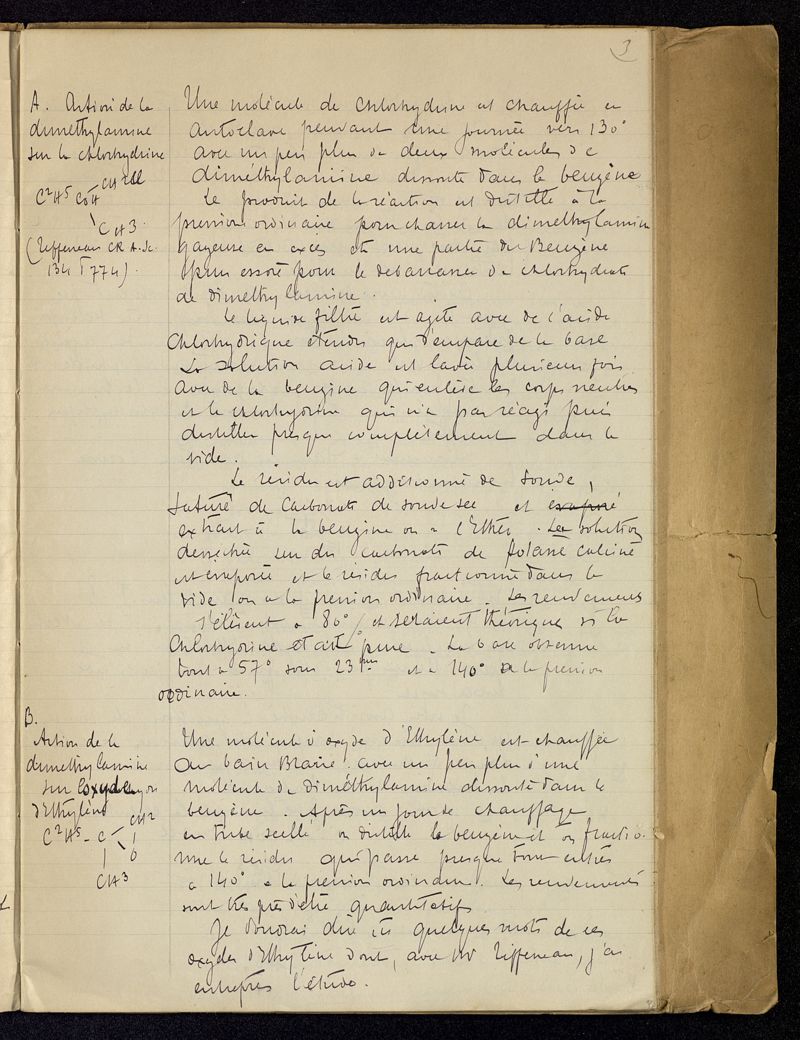 3
A. Action de la
dimethylamine
sur la chlorhydrine
CH2Cl
C2H5 COH
CH3
(Tiffeneau CR A. Sc.
134 T 774).
Une molécule de chlorhydrine est chauffée en
autoclave pendant une journée vers 130°
avec un peu plus de deux molécules de
diméthylamine dissoute dans le benzène
Le produit de la réaction est distillé à la
pression ordinaire pour chasser la dimethylamine
gazeuse en excès et une partie du Benzène
puis essoré pour le debarrasser du chlorhydrate
de dimethylamine.
Le liquide filtré est agité avec de l'acide
Chlorhydrique étendu qui s'empare de la base
La solution acide est lavée plusieurs fois
avec de la benzine qui enlève les corps neutres
et la chlorhydrine qui n'a pas réagi puis
distillée presque complètement dans le
vide.
Le résidu est additionné de soude,
saturé de Carbonate de soude sec et évaporé
extrait à la benzine ou à l'Ether. La solution
dessechée sur du carbonate de potasse calciné
est évaporée et le résidu fractionné dans le
vide ou a la pression ordinaire. Les rendements
s'élèvent a 80°/ et seraient théoriques si la
Chlorhydrine etait pure. La base obtenue
bout a 57° sous 23mm et a 140° a la pression
ordinaire.
B.
Action de la
dimethylamine
sur l'oxyde
d'Ethylène
CH2
C2H5 - C
O
CH3
Une molécule d'oxyde d'Ethylène est chauffée
au bain Marie avec un peu plus d'une
molécule de diméthylamine dissoute dans le
benzène. Après un jour de chauffage
en tube scellé on distille le benzène et on fractio-
nne le résidu qui passe presque tout entier
a 140° a la pression ordinaire. Les rendements
sont très près d'être quantitatifs
Je voudrai dire ici quelques mots de ces
oxydes d'Ethylène dont, avec Mr Tiffeneau, j'ai
entrepris l'étude.